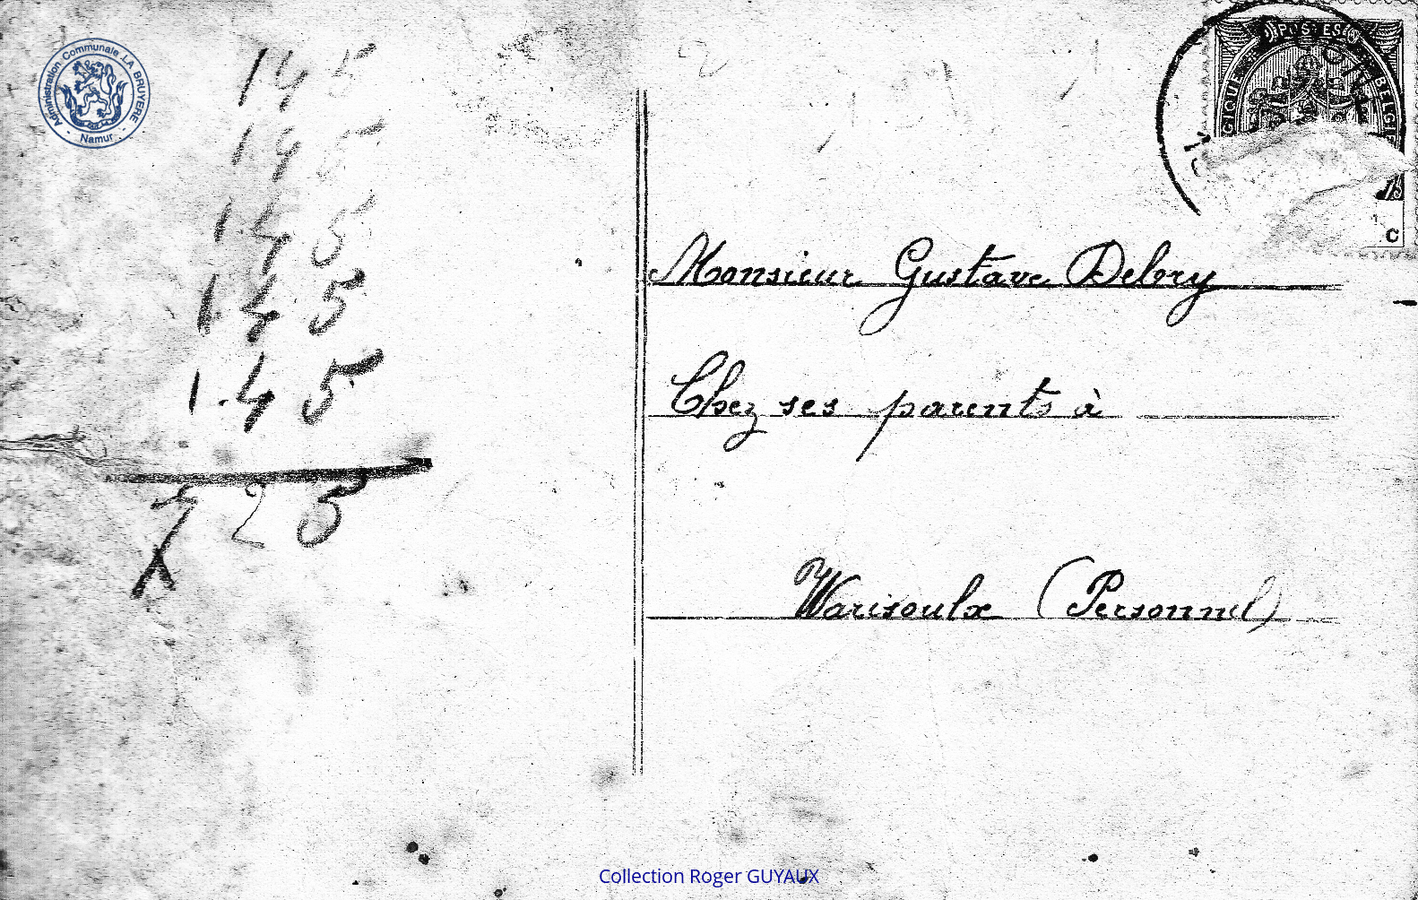 Administration Communale LA BRUYERE
- Namur -
145
145
145
145
1.45
725
POSTES
BELGIQUE BELGIE
Monsieur Gustave Debry
Chez ses parents à
Warisoulx (Personnel)
Collection Roger GUYAUX